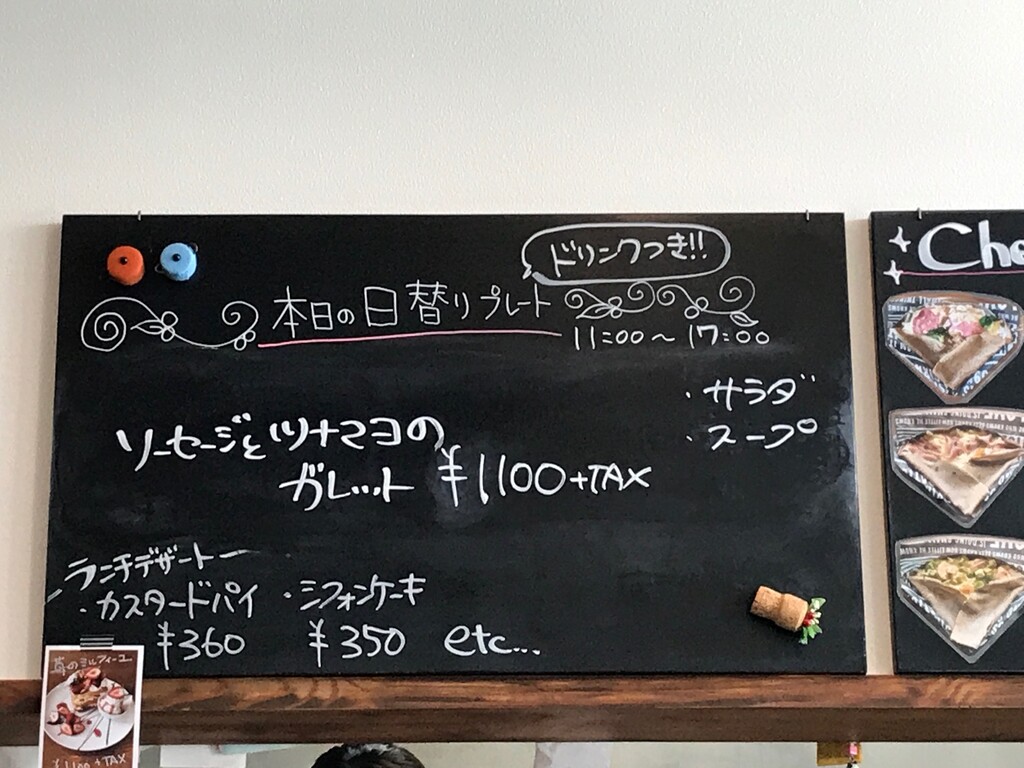 ドリンクつき!!
本日の日替りプレート
11:00〜17:00
・サラダ
・スープ
ソーセージとツナマヨの
ガレット ¥1100+TAX
ランチデザート
・カスタードパイ ・シフォンケーキ
¥360 ¥350 etc...
苺のミルフィーユ
¥1100+TAX
Che